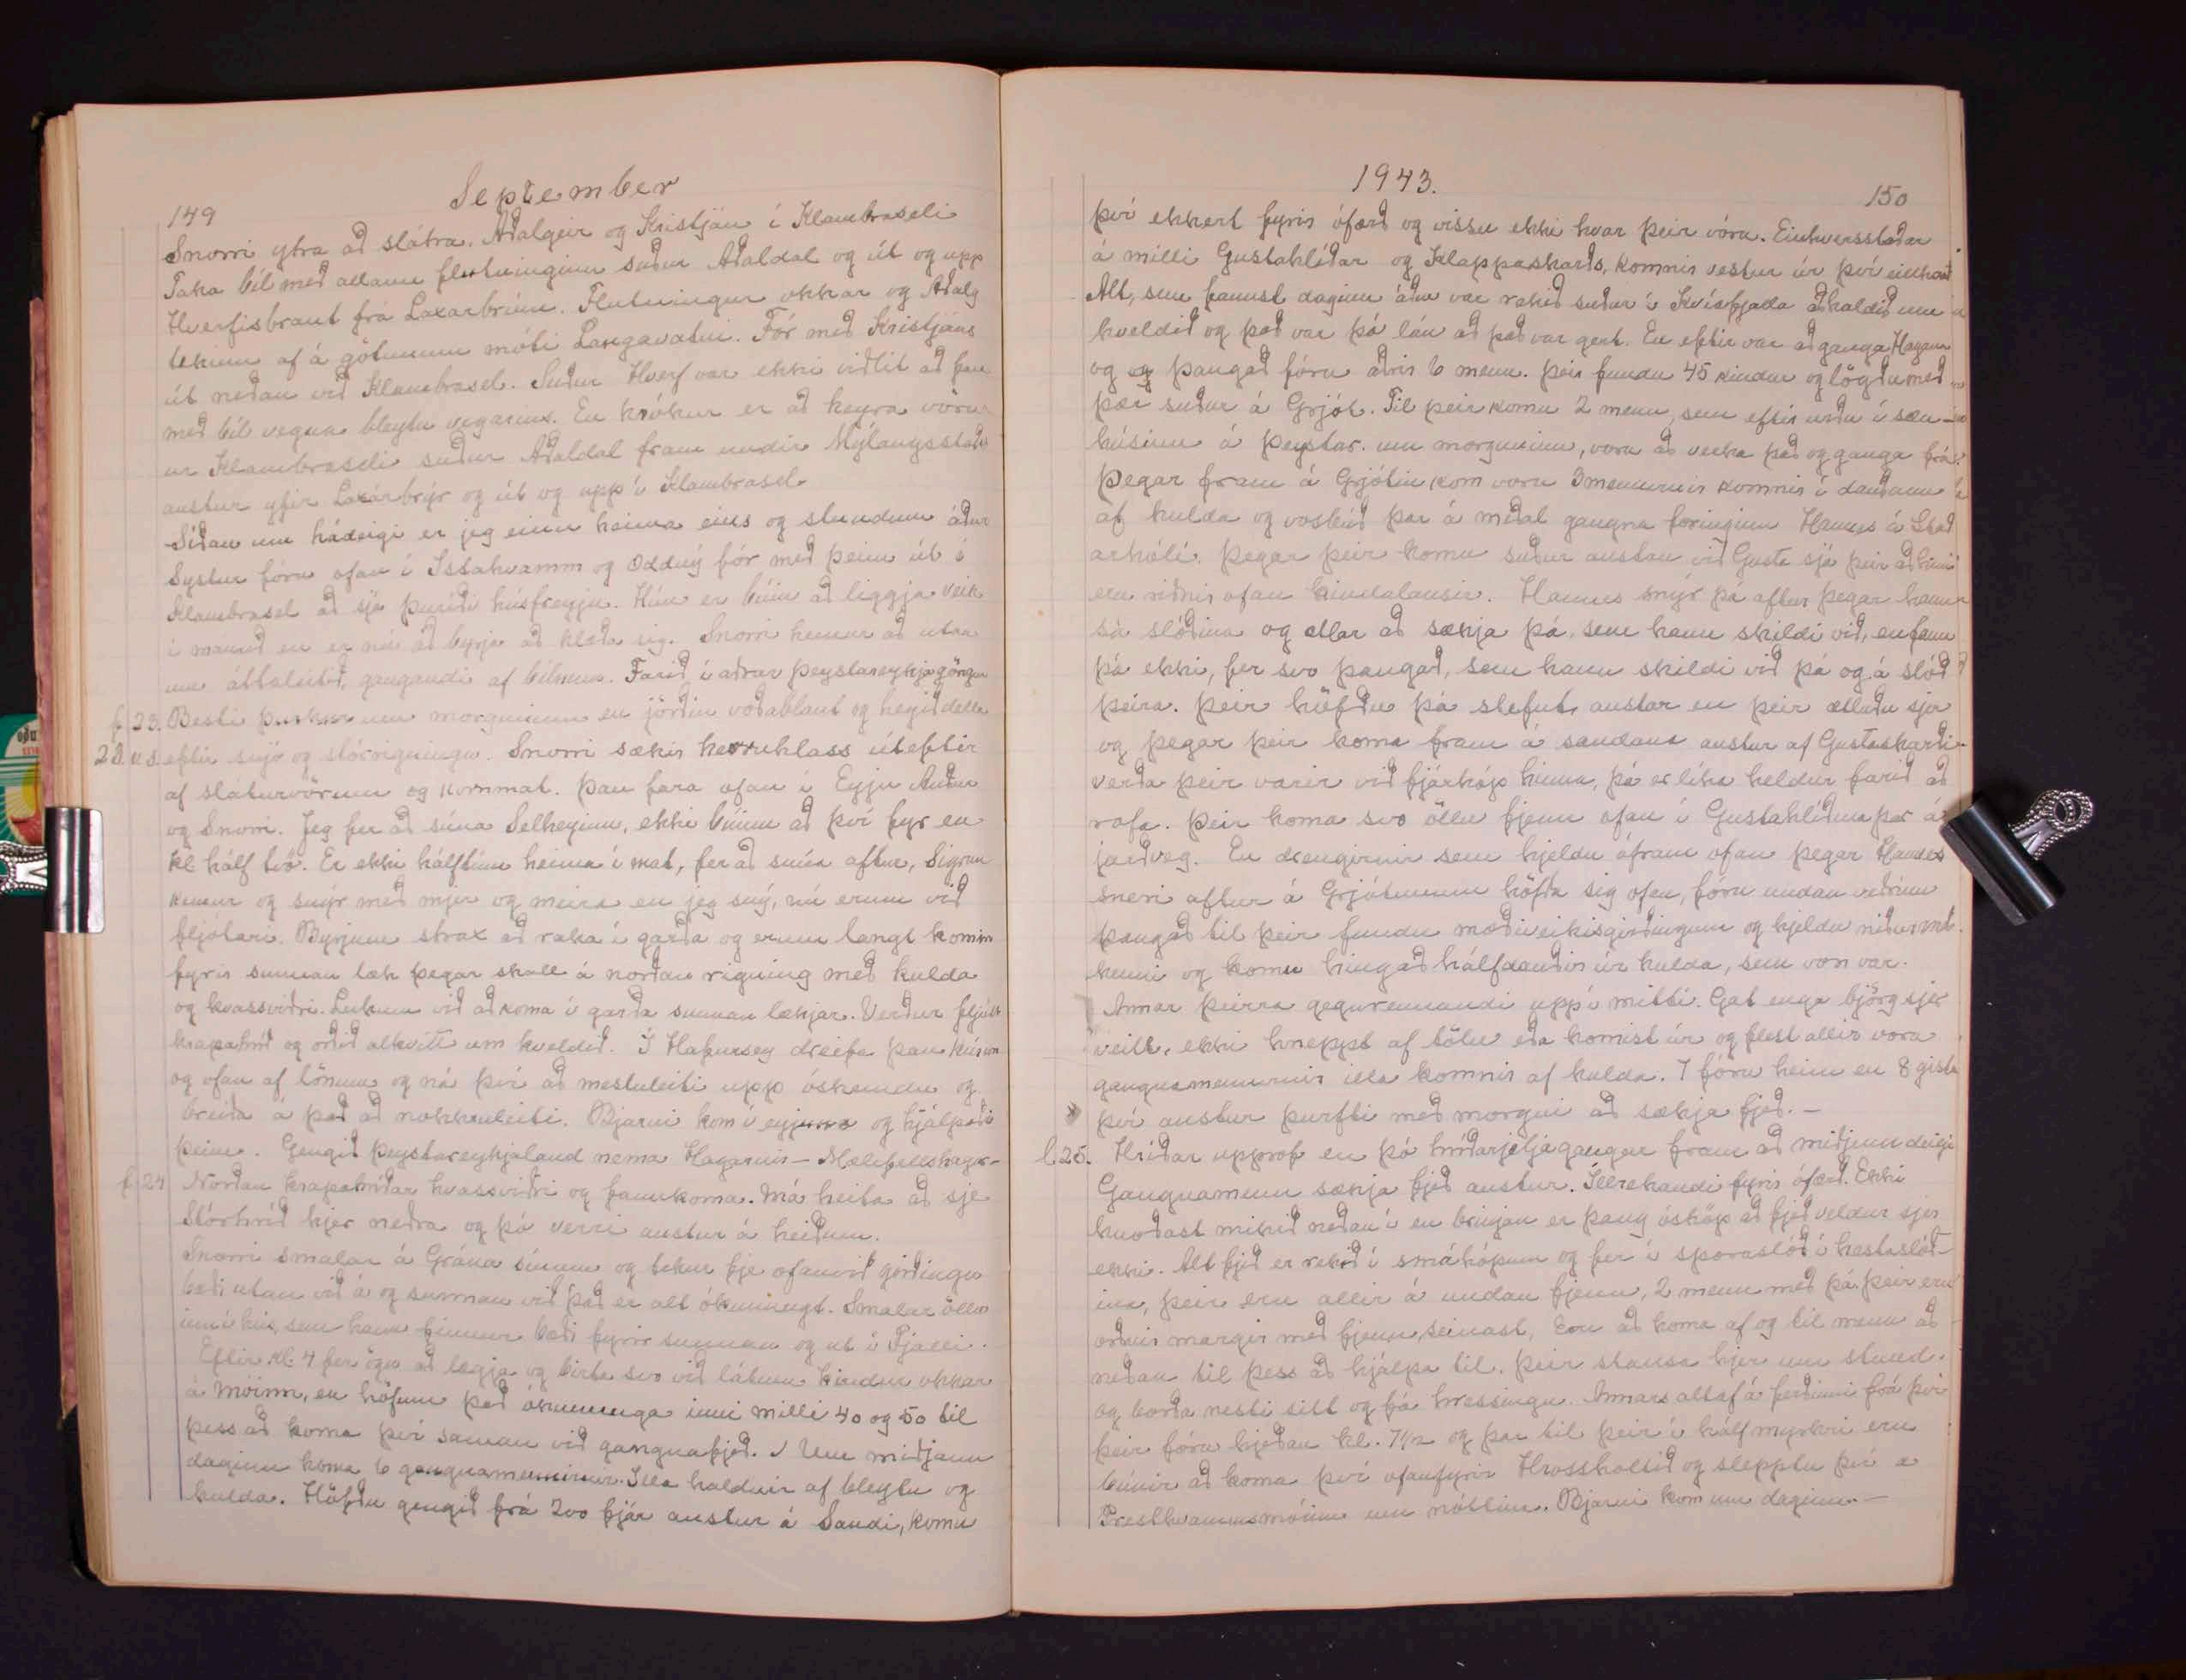 September
149
Snorri ytra að slátra. Aðalgeir og Kristján í Klambraseli
Taka bíl með allann flutninginn suður Aðaldal og út og upp
Hverfisbraut frá Laxarbrúnn. Flutningur okkar og Aðalg
tekinn af á götunum móti Langavatni. Fór með Kristjáns
út neðan við Klambrasel. Suður Hverf var ekki viðlit að fara
með bíl vegna bleytu vegarins. En krókur er að keyra vörur
úr Klambraseli suður Aðaldal fram undir Mýlaugsstaði
austur yfir Laxárbrýr og út og upp í Klambrasel.
Síðan um hádeigi er jeg einn heima eins og stundum áður
Systur fóru ofan í Ístahvamm og Oddný fór með þeim út í
Klambrasel að sjá Þuríði húsfreyju. Hún er búin að liggja veik
í mánuð en er nú að byrja að klæða sig. Snorri kemur að utan
um áttaleitið, gangandi af bílnum. Farið í aðrar Þeystareykjagöngur
f 23. Besti þurkur um morguninn en jörðin voðablaut og heyið della
23. u.s. eftir snjó og stórrigningu. Snorri sækir kerruhlass út eftir
af sláturvörum og kornmat. Þau fara ofan í Eyju Auður
og Snorri. Jeg fer að snúa Selheyinu, ekki búinn að því fyr en
kl hálf tvö. Er ekki hálftíma heima í mat, fer að snúa aftur, Sigrun
kemur og snýr með mjer og meira en jeg sný, nú erum við
fljótari. Byrjum strax að raka í garða og erum langt komin
fyrir sunnan læk þegar skall á norðan rigning með kulda
og hvassviðri. Lukum við að koma í garða sunnan lækjar. Verður fljótt
krapahríð og orðið alhvítt um kveldið. Í Hafursey dreifa þau
og ofan af lönum og ná því að mestuleiti upp óskemdu og
breiða á það að nokkruleiti. Bjarni kom í eyjuna og hjálpaði
þeim. Gengið Þeystareykjaland nema Hagarnir – Mælifellshagar –
f 24 Norðan krapahríðar hvassviðri og fannkoma. Má heita að sje
Stórhríð hjer neðra og þó verri austur á heiðum.
Snorri smalar á Grána sínum og tekur fje ofanvið girðingu
bæði utan við á og sunnan við það er alt ókunnugt. Smalar öllu
inn í hús, sem hann finnur bæði fyrir sunnan og út í Fjalli.
Eftir kl. 4 fer ögn að lægja og birta svo við látum kindur okkar
á Móinn, en höfum það ókunnuga inni milli 40 og 50 til
þess að koma því saman við gangnafjeð. Um miðjann
daginn koma 6 gangnamennirnir. Illa haldnir af bleytu og
kulda. Höfðu gengið frá 200 fjár austur á Sandi, komu
1943.
150
því ekkert fyrir ófærð og vissu ekki hvar þeir vóru. Einhversstaðar
á milli Gustahlíðar og Klappaskarðs, komnir vestur úr því einhvað
Alt, sem fannst daginn áður var rekið suður í Kvíafjada aðhaldið um
kveldið og það var þó lán að það var gert. En eftir var að ganga Hagann
og og þangað fóru aðrir 6 menn. Þeir fundu 45 kindur og lögðu með
þær suður á Grjót. Til þeir komu 2 menn, sem eftir urðu í sælu-
húsinu á Þeystar. um morguninn, voru að vekka það og ganga frá.
Þegar fram á Grjótin kom voru 3 mennirnir komnir í dauðann
af kulda og vosbúð þar á meðal gangna foringinn Hannes á Stað
arhóli. Þegar þeir komu suður austan við Gusta sjá þeir að hinir
eru riðnir ofan kindalausir. Hannes snýr þá aftur þegar hann
sá slóðina og ætlar að sækja þá, sem hann skildi við, en fann
þá ekki, fer svo þangað, sem hann skildi við þá og á slóð
þeira. Þeir höfðu þá stefnt austar en þeir ætluðu sjer
og þegar þeir koma fram á sandana austur af Gustaskarði
verða þeir varir við fjárhóp hinna, þá er líka heldur farið að
rofa. Þeir koma svo öllu fjenu ofan í Gustahlíðina þar á
jarðveg. En drengirnir sem hjeldu áfram ofan þegar Hannes
sneri aftur á Grjótunum höfðu sig ofan, fóru undan veðrinu
þangað til þeir fundu mæðiveikisgirðinguna og hjeldu niður með
henni og komu hingað hálfdauðir úr kulda, sem von var.
Annar þeirra gegnrennandi upp í mitti. Gat enga björg sjer
veitt, ekki hneppt af tölu eða komist úr og flest allir vora
gangnamennirnir illa komnir af kulda. 7 fóru heim en 8 gista
því austur þurfti með morgni að sækja fjeð. –
l. 25. Hríðar upprof en þó hríðarjeljagangur fram að miðjum deigi
Gangnamenn sækja fjeð austur. Illrekandi fyrir ófærð. Ekki
hnoðast mikið neðan í en bringan er þaug ósköp að fjeð veldur sjer
ekki. Alt fjeð er rekið í smáhópum og fer í sporaslóð í hestaslóð-
ina, þeir eru allir á undan fjenu, 2 menn með þá. Þeir eru
orðnir margir með fjenu, seinast, Eru að koma af og til menn að
neðan til þess að hjálpa til. Þeir stansa hjer um stund.
og borða nesti sitt og fá hressingu. Annars altaf á ferðinni frá því
þeir fóru hjeðan kl. 7½ og þar til þeir í hálf myrkri eru
búnir að koma því ofanfyrir Hrossholtið og slepptu því á
Presthvammsmóinn um nóttina. Bjarni kom um daginn. –